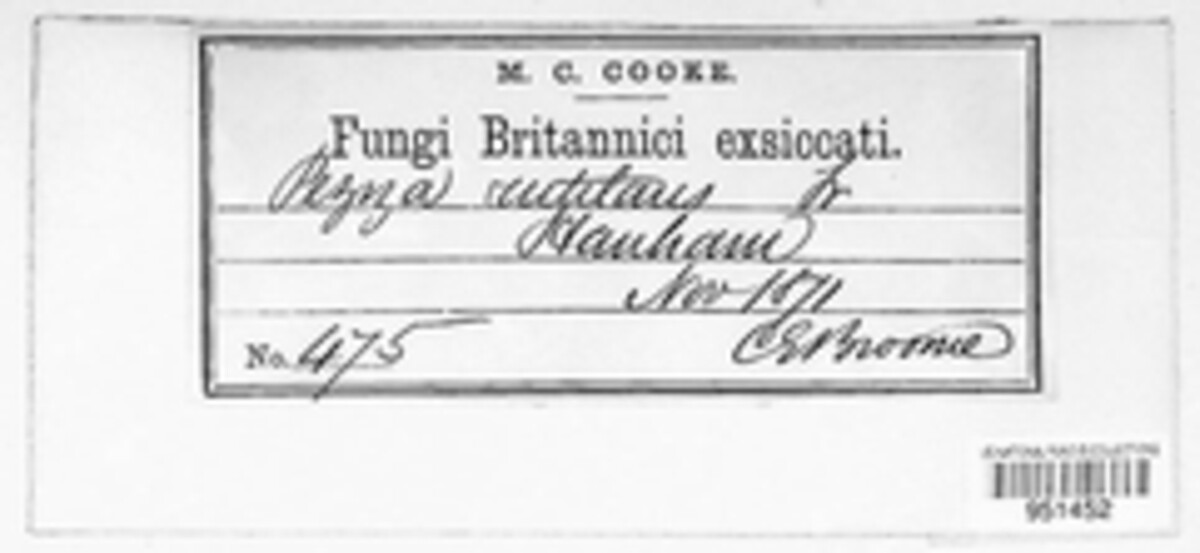 M. C. COOKE.
Fungi Britannici exsiccati.
Peziza rutilans Fr
Hanham
Nov 1871
No. 475
CEBroome
951452